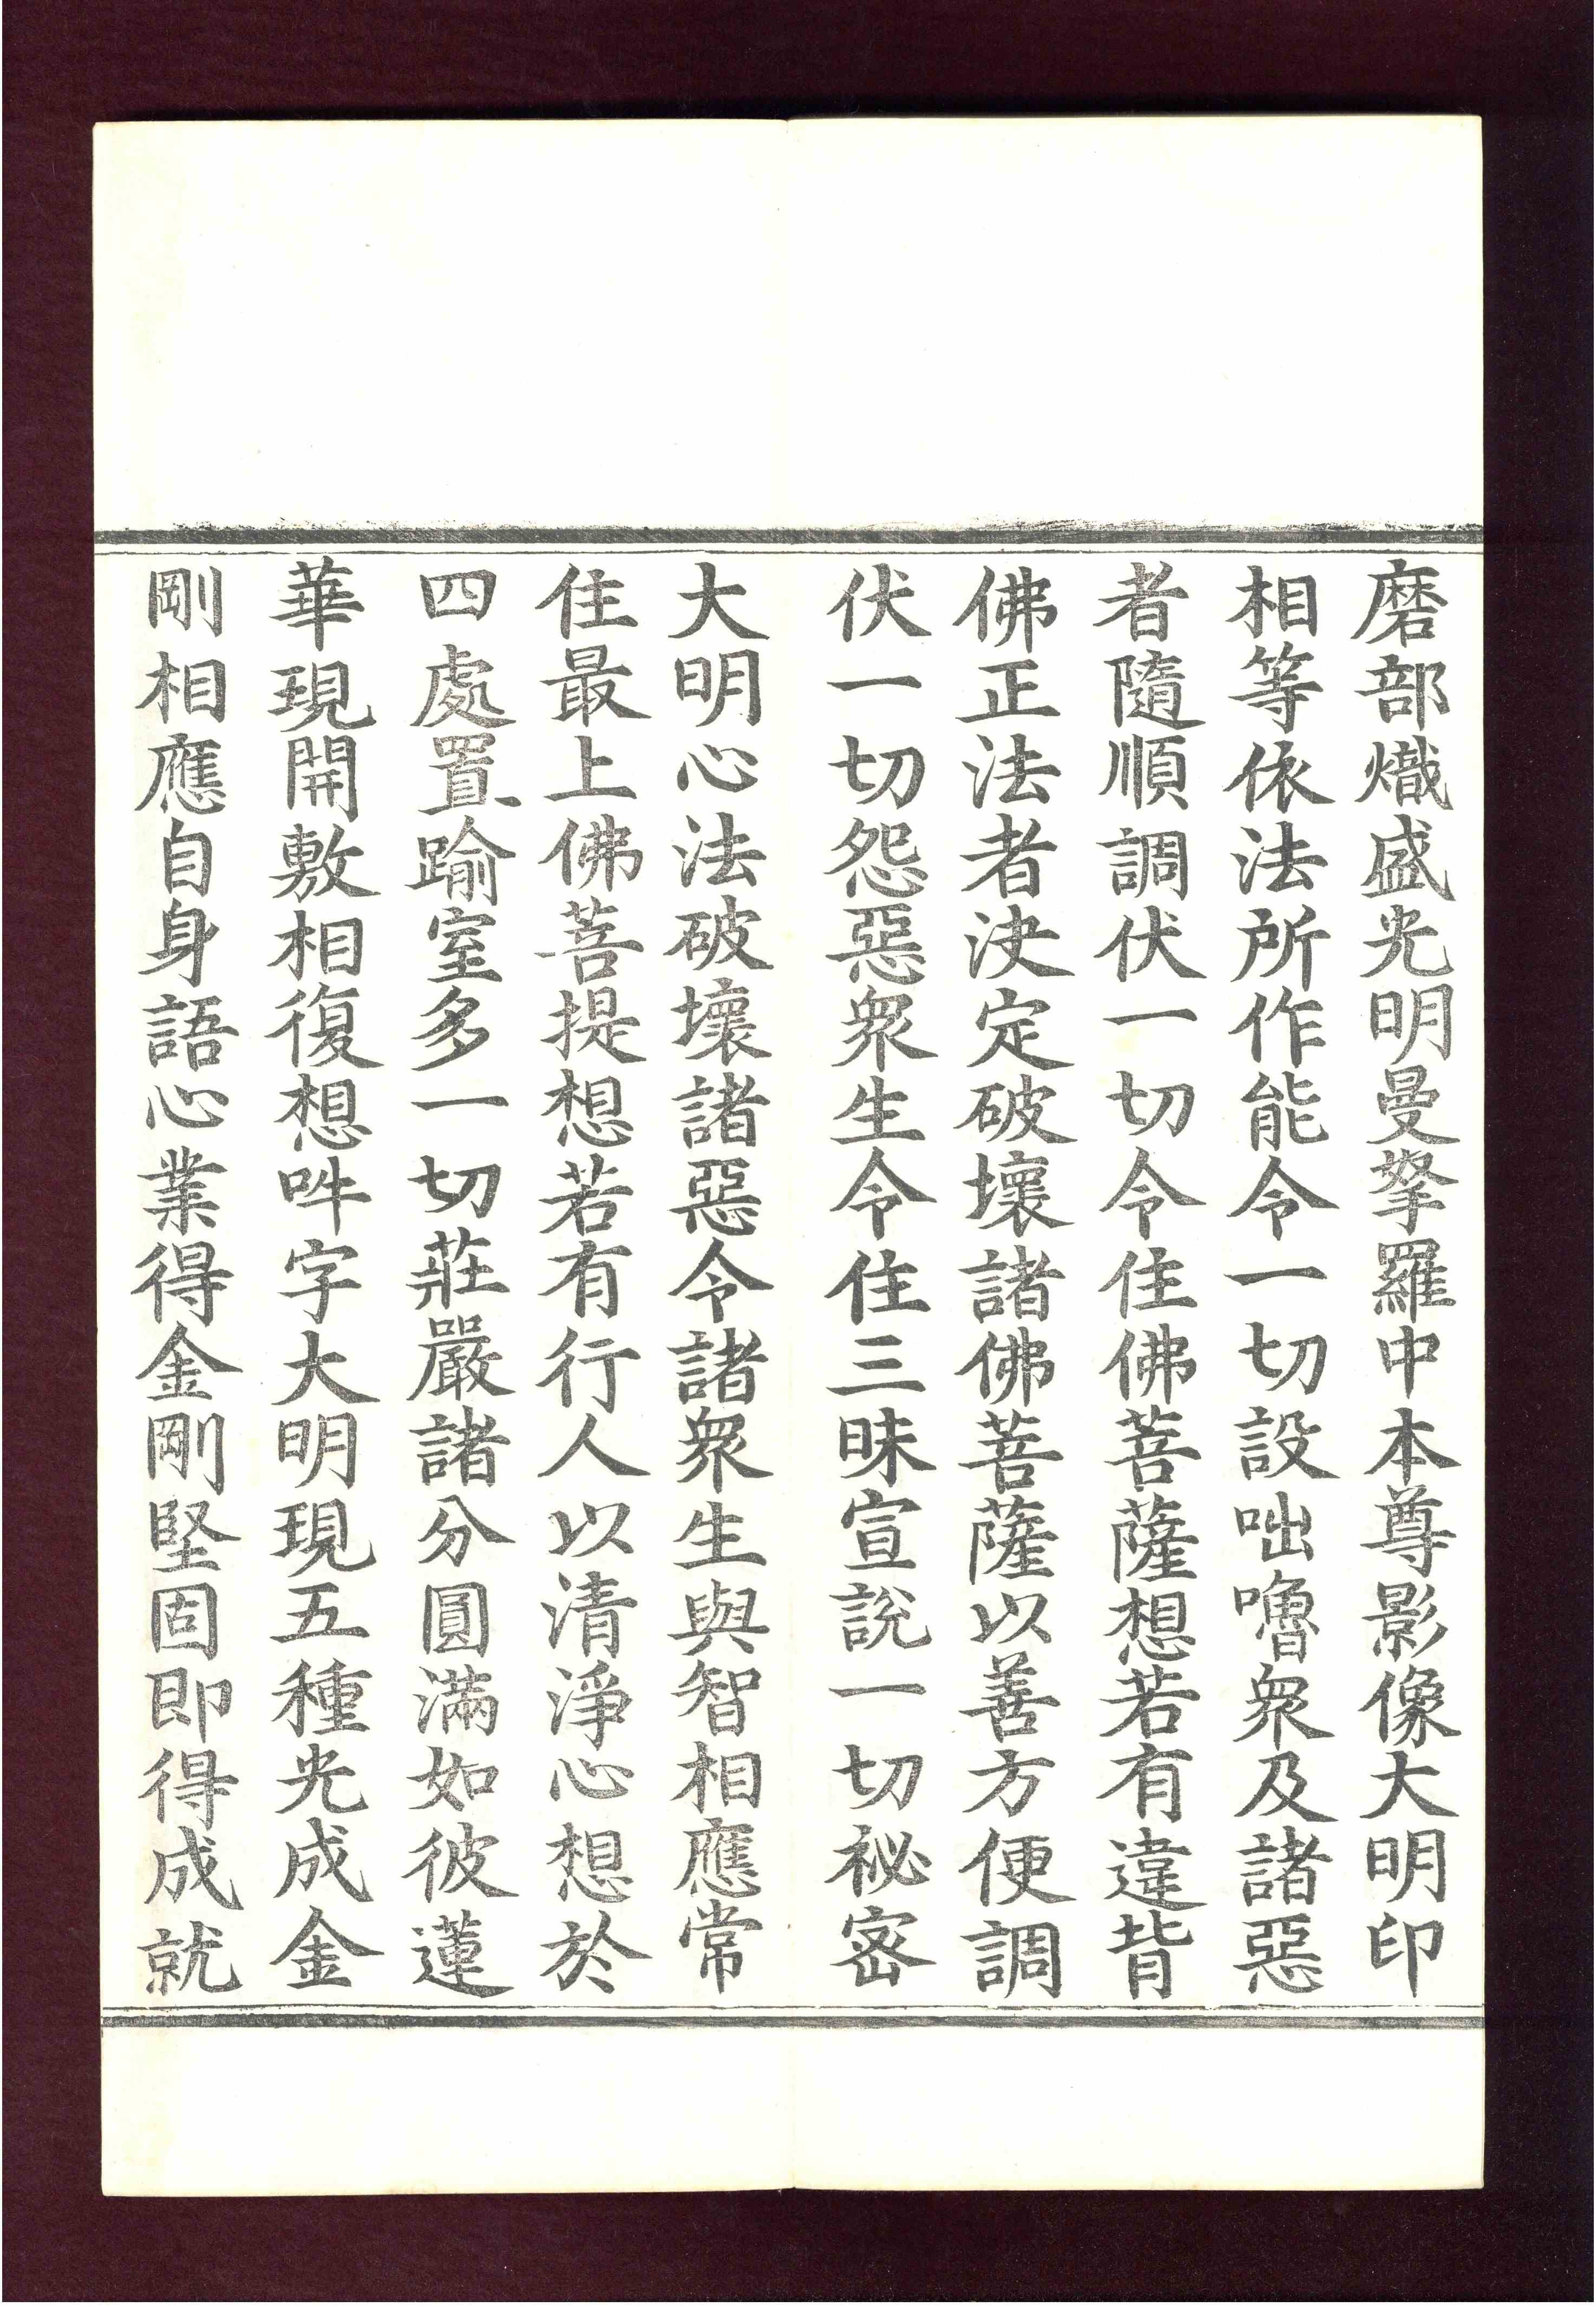 磨部熾盛光明曼拏羅中本尊影像大明印
相等依法所作能令一切設咄嚕衆及諸惡
者隨順調伏一切令住佛菩薩想若有違背
佛正法者決定破壞諸佛菩薩以善方便調
伏一切怨惡衆生令住三昧宣說一切祕密
大明心法破壞諸惡令諸衆生與智相應常
住最上佛菩提想若有行人以清淨心想於
四處置踰室多一切莊嚴諸分圓滿如彼蓮
華現開敷相復想吽字大明現五種光成金
剛相應自身語心業得金剛堅固即得成就